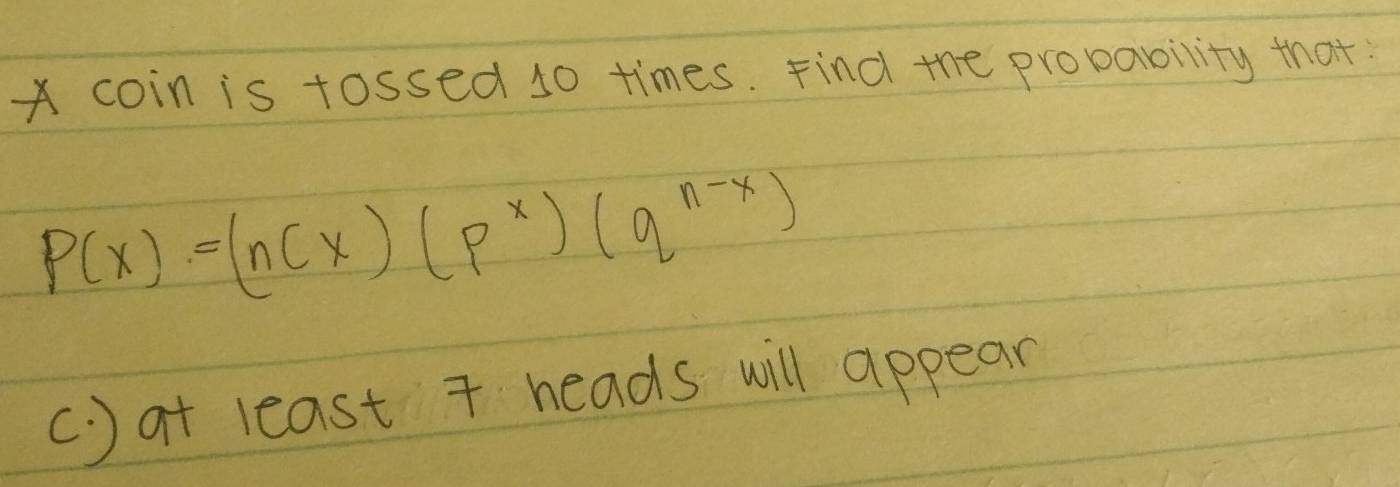 A coin is tossed 10 times. Find the probability that:
P(x) = (nCx) (p^x) (q^n-x)
c.) at least 7 heads will appear